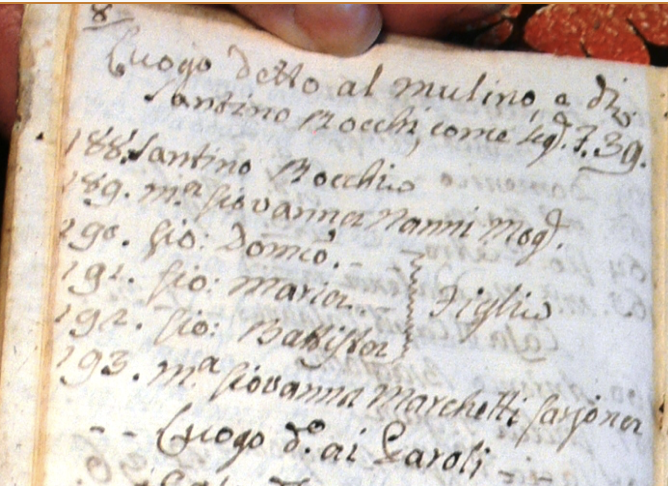 8
Luogo detto al mulino, e di
Santino Rocchi, come seg. F. 39.
188. Santino Rocchi
189. M.a Giovanna Nanni Mog.
190. Gio: Domco. -
191. Gio: Maria. - Figli
192. Gio: Battista
193. M.a Giovanna Marchetti Garzona
- - Luogo d.o ai Garoli - -